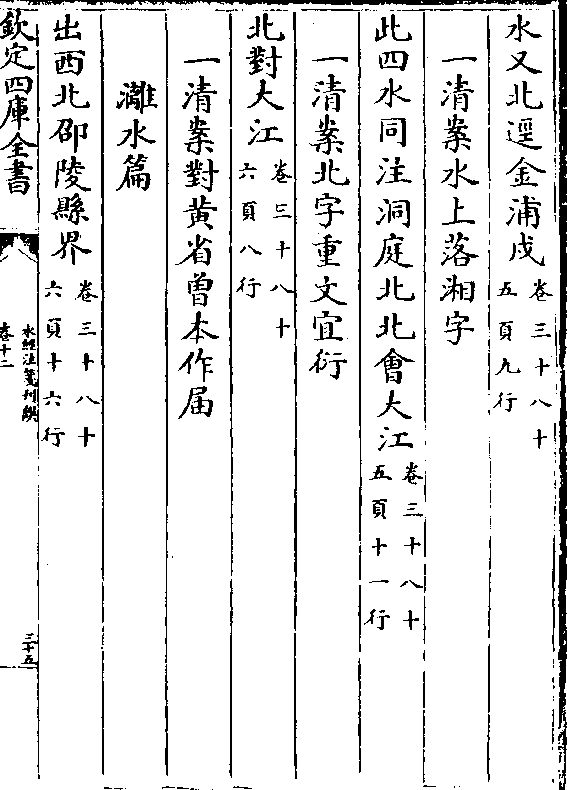 水又北逕金浦戍卷三十八十五頁九行
一清案水上落湘字
此四水同注洞庭北北會大江卷三十八十五頁十一行
一清案北字重文宜衍
北對大江卷三十八十六頁八行
一清案對黄省曽本作届
灕水篇
出西北邵陵縣界卷三十八十六頁十六行
欽定四庫全書
水經注箋刊誤
卷十二
三十五